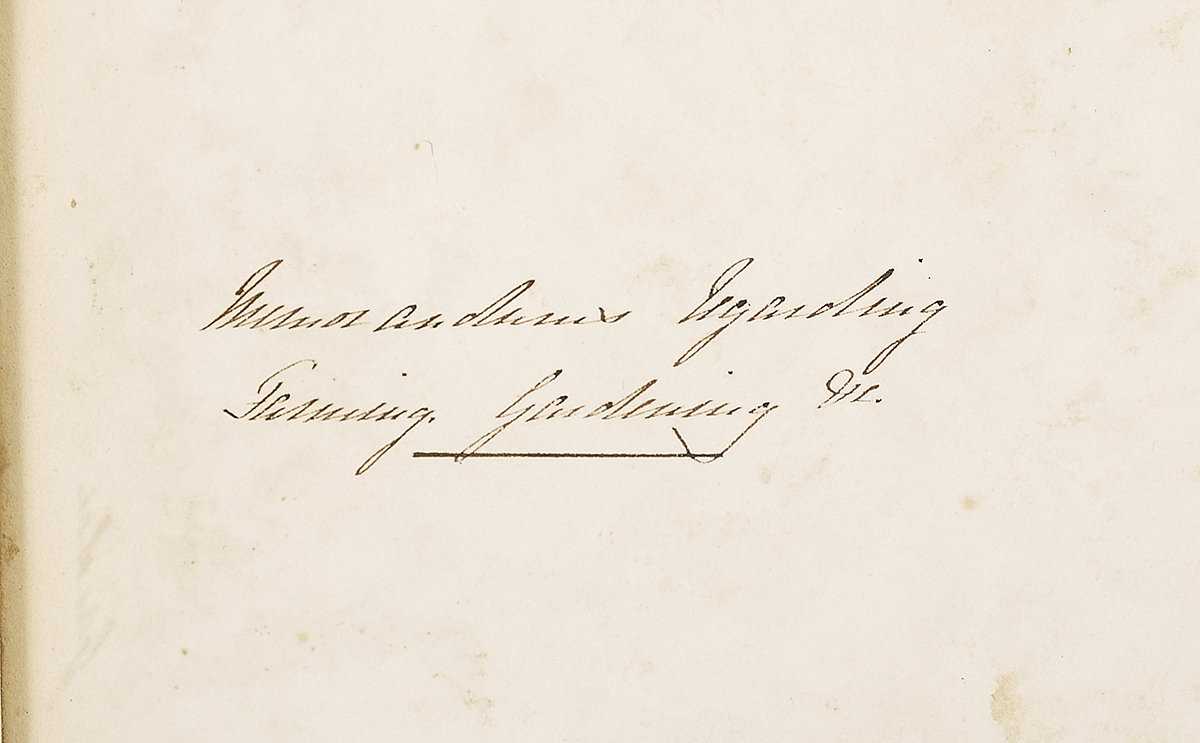 Memorandums Regarding
Farming. Gardening &c.